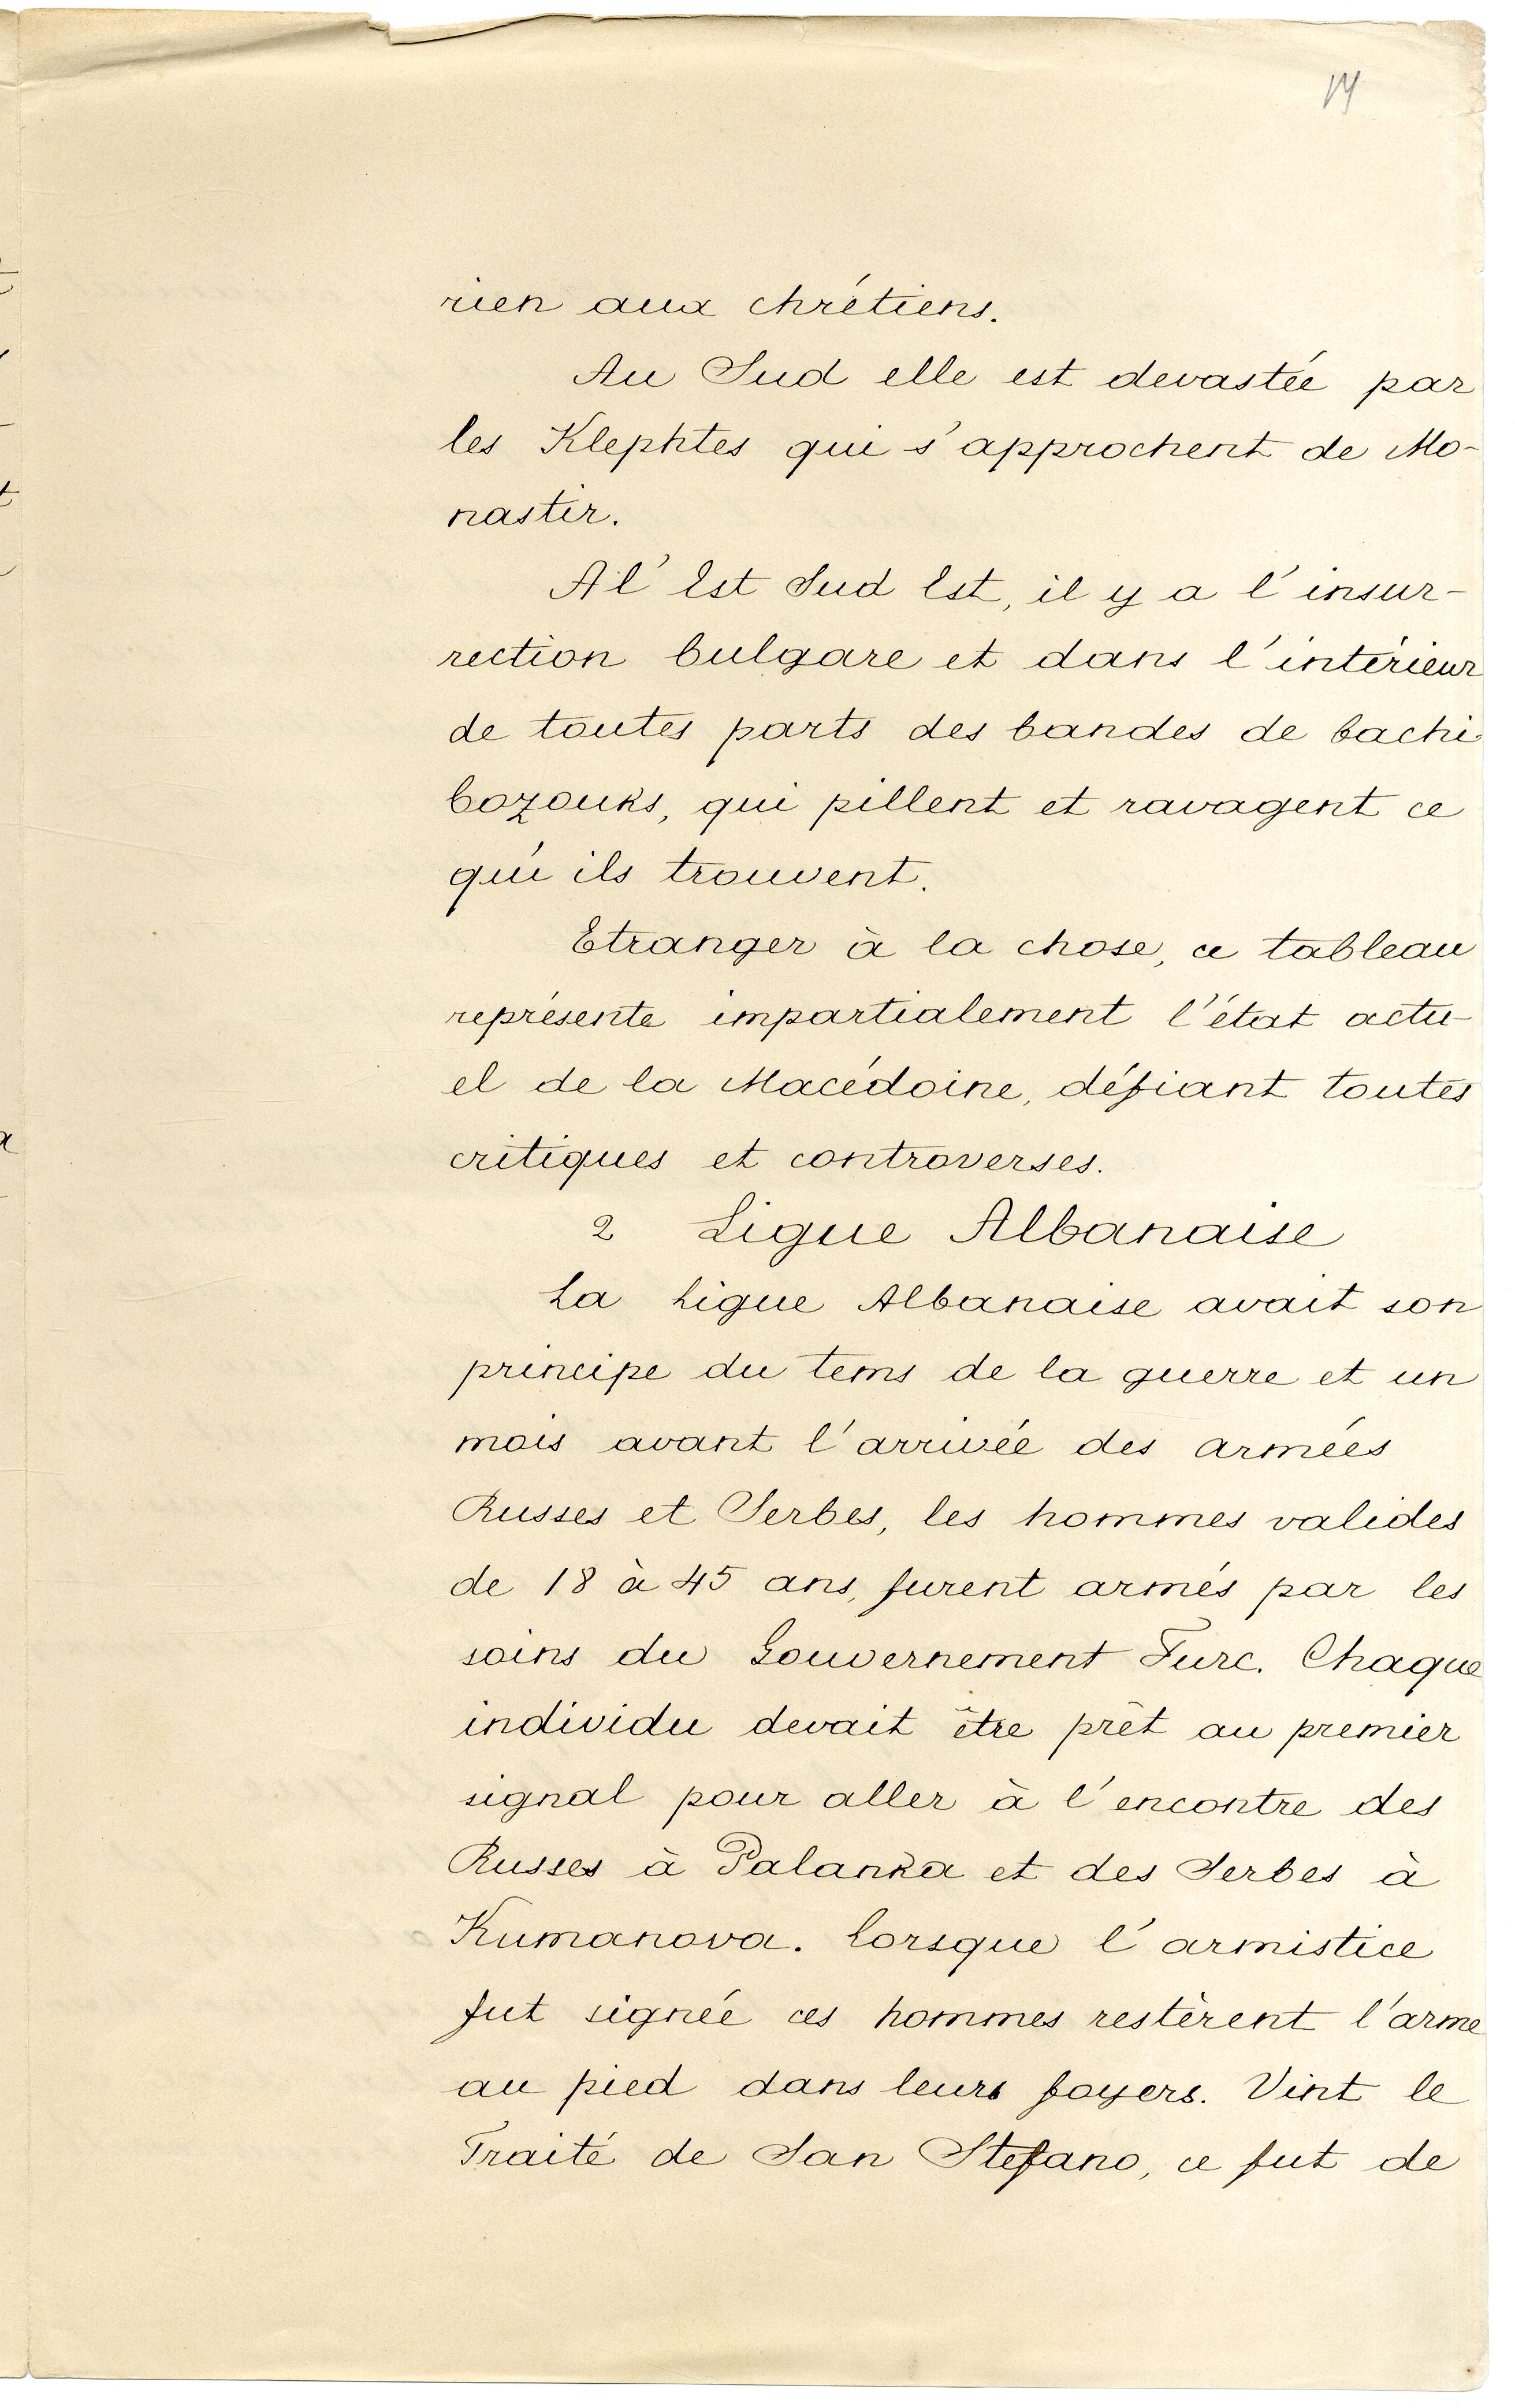 rien aux chrétiens.
Au Sud elle est devastée par
les Klephtes qui s'approchent de Mo-
nastir.
A l'Est Sud Est, il y a l'insur-
rection bulgare et dans l'intérieur
de toutes parts des bandes de bachi
bozouks, qui pillent et ravagent ce
qu'ils trouvent.
Etranger à la chose, ce tableau
représente impartialement l'état actu-
el de la Macédoine, défiant toutes
critiques et controverses.
2 Ligue Albanaise
La Ligue Albanaise avait son
principe du tems de la guerre et un
mois avant l'arrivée des armées
Russes et Serbes, les hommes valides
de 18 à 45 ans, furent armés par les
soins du Gouvernement Turc. Chaque
individu devait être prêt au premier
signal pour aller à l'encontre des
Russes à Palanka et des Serbes à
Kumanova. Lorsque l'armistice
fut signée ces hommes restèrent l'arme
au pied dans leurs foyers. Vint le
Traité de San Stefano, ce fut de